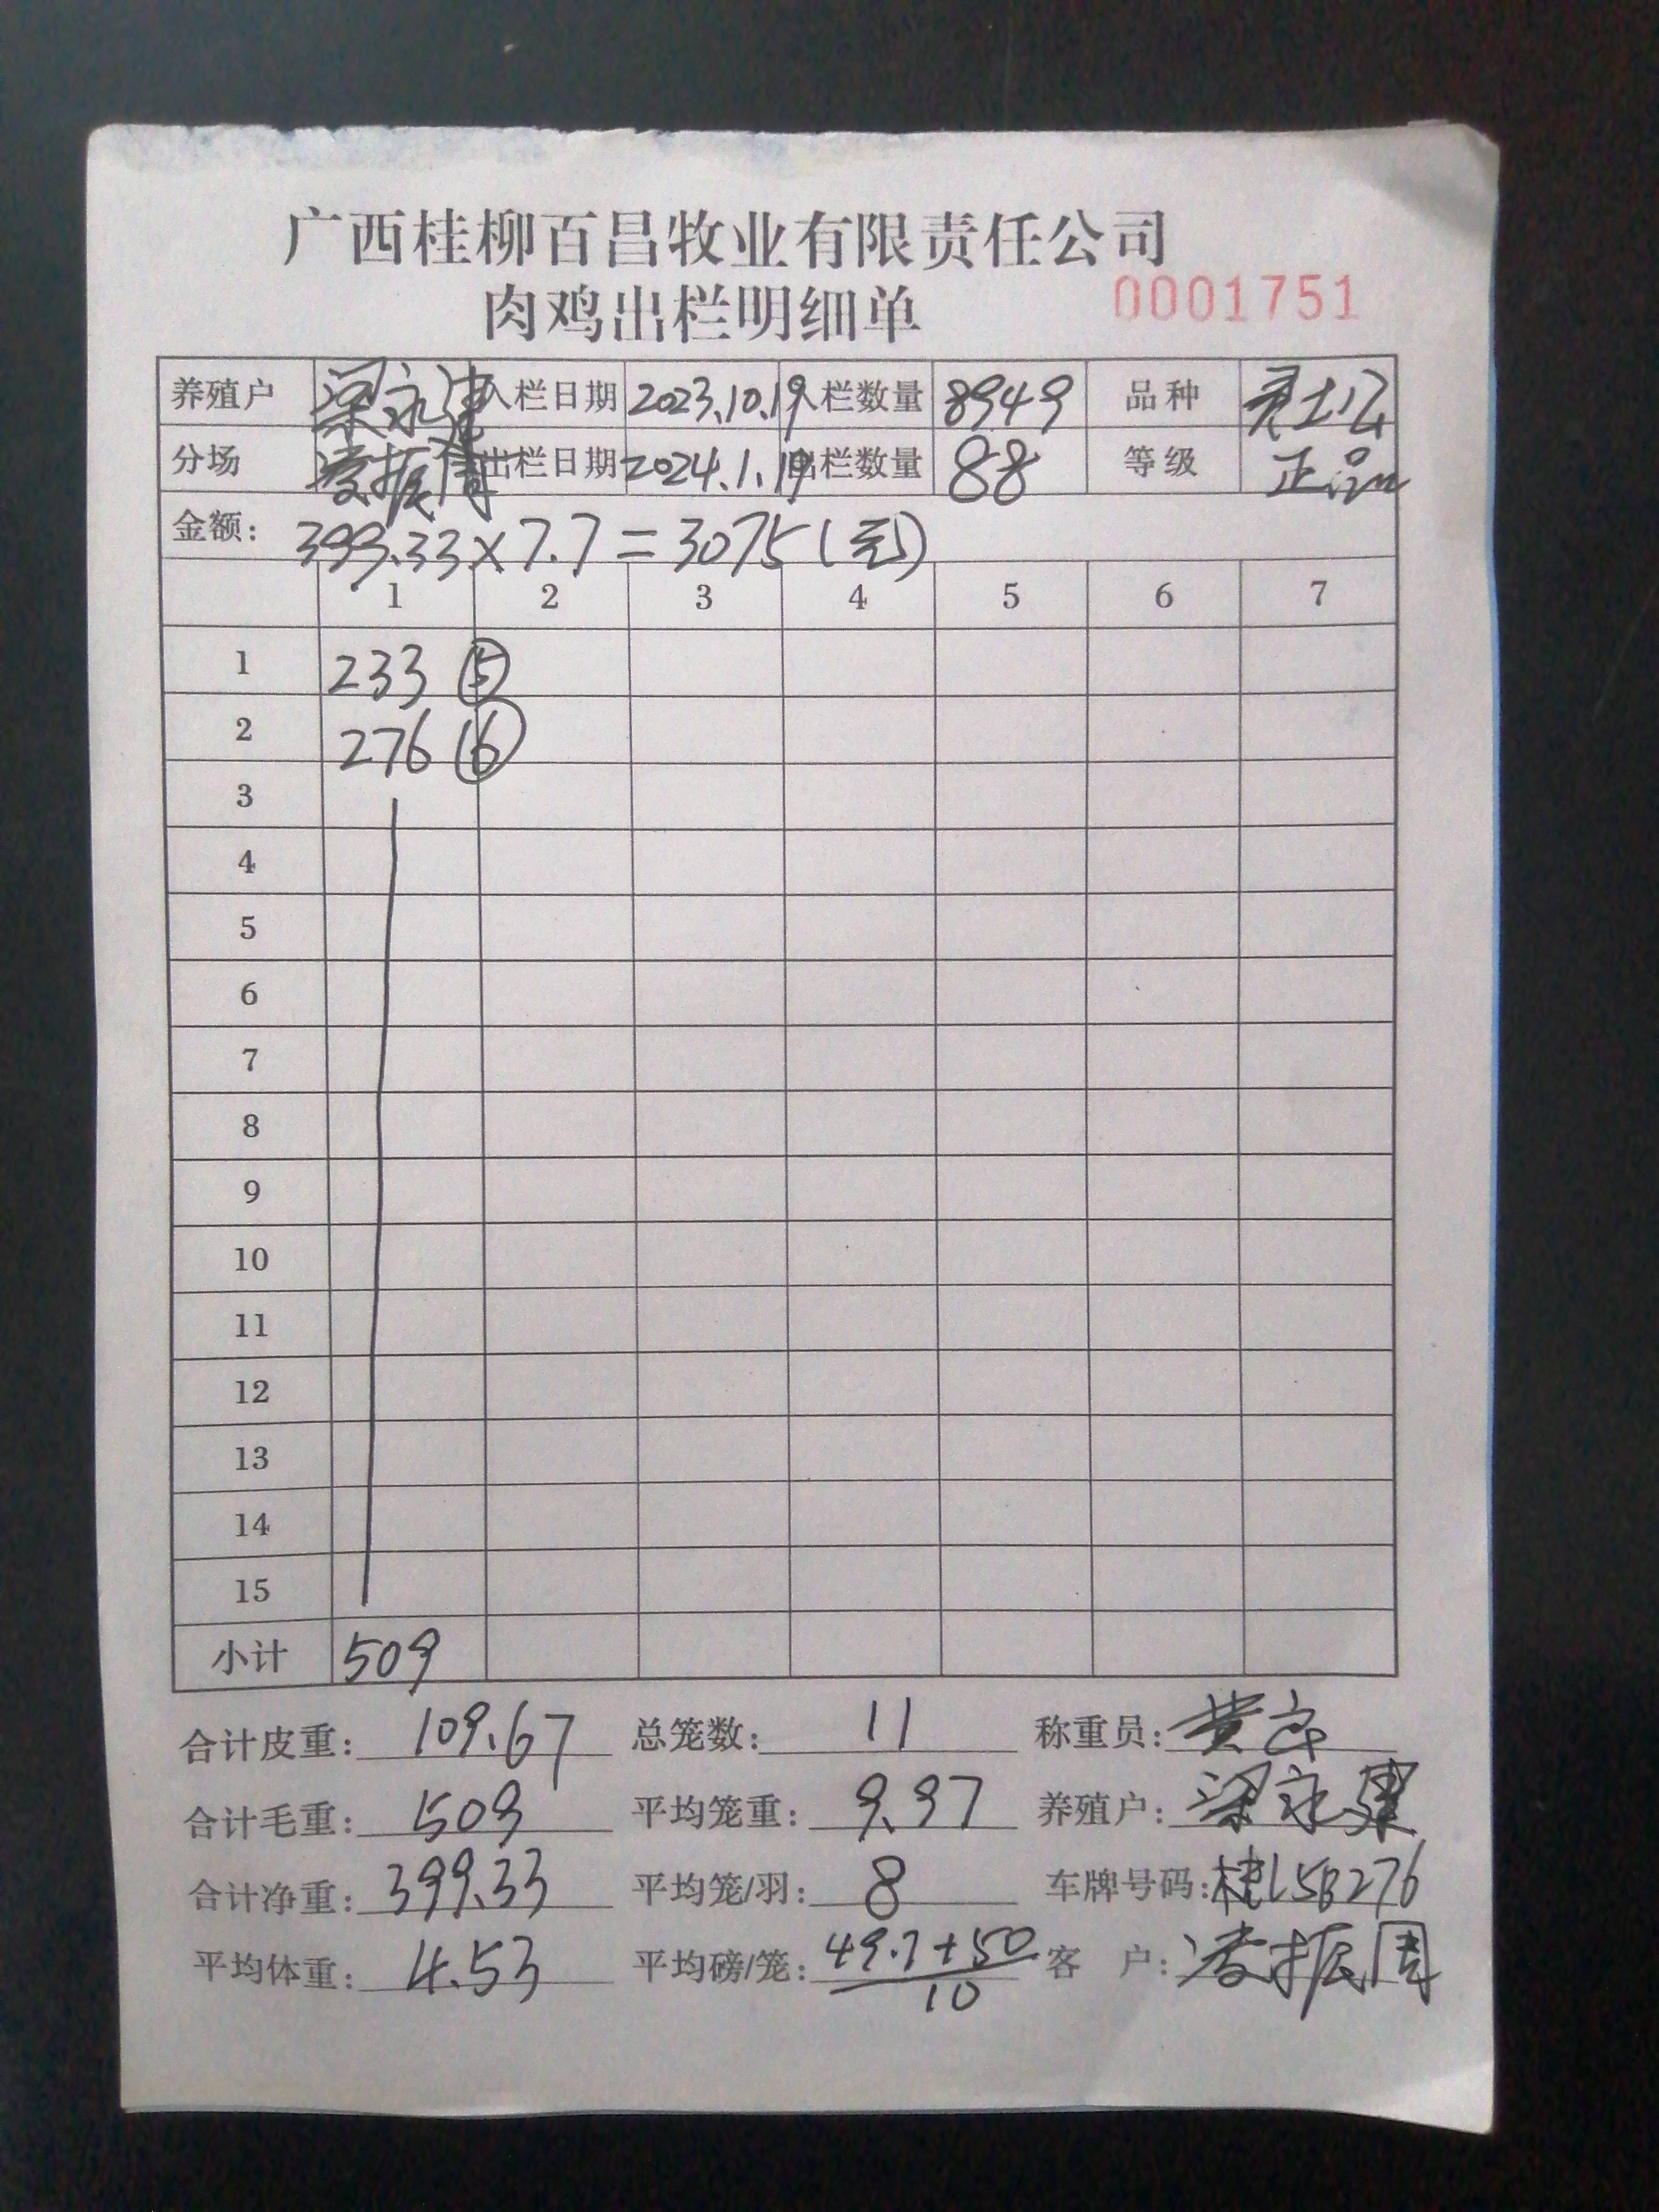 广西桂柳百昌牧业有限责任公司
肉鸡出栏明细单 0001751
养殖户 梁永建 入栏日期 2023.10.19 入栏数量 8949 品种 灵土公
分场 凌振周 出栏日期 2024.1.19 出栏数量 88 等级 正品
金额: 399.33×7.7=3075(元)
1 2 3 4 5 6 7
1 233 ⑤
2 276 ⑥
3
4
5
6
7
8
9
10
11
12
13
14
15
小计 509
合计皮重: 109.67 总笼数: 11 称重员: 黄
合计毛重: 509 平均笼重: 9.97 养殖户: 梁永建
合计净重: 399.33 平均笼/羽: 8 车牌号码: 桂L5B276
平均体重: 4.53 平均磅/笼: 49.7+50 客 户: 凌振周
10